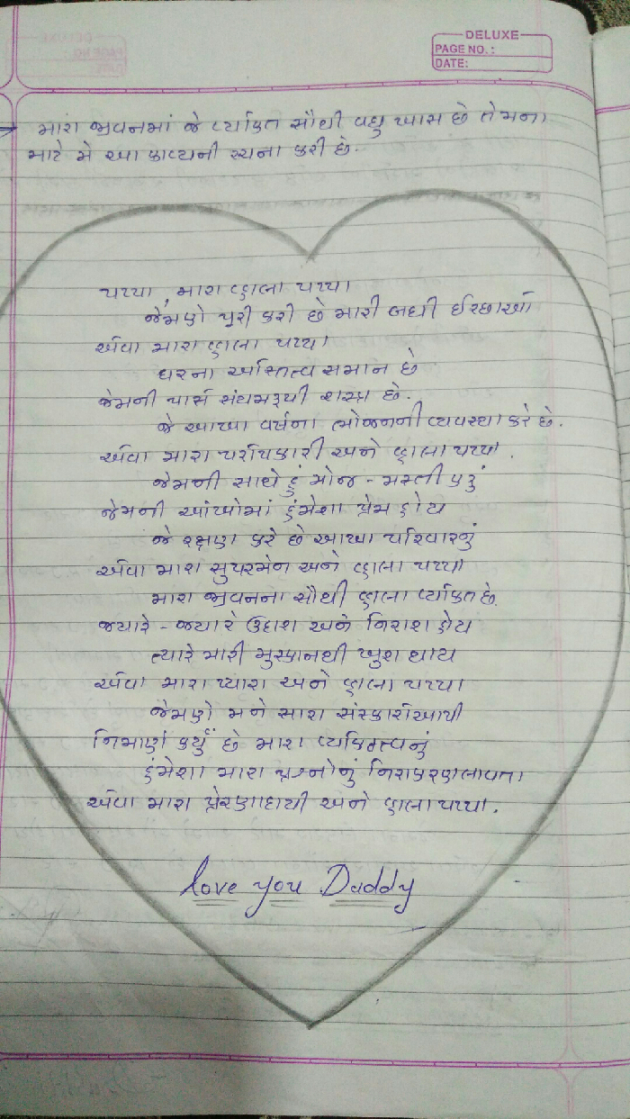 DELUXE
PAGE NO.:
DATE:
→ મારા જીવનમાં જે વ્યક્તિ સૌથી વધુ ખાસ છે તેમના
માટે મે આ કાવ્યની રચના કરી છે.
પપ્પા, મારા વ્હાલા પપ્પા
જેમણે પૂરી કરી છે મારી બધી ઈચ્છાઓ
એવા મારા વ્હાલા પપ્પા
ઘરના અસ્તિત્વ સમાન છે
જેમની પાસે સંઘમરૂપી શસ્ત્ર છે.
જે આખા વર્ષના ભોજનની વ્યવસ્થા કરે છે.
એવા મારા પરોપકારી અને વ્હાલા પપ્પા.
જેમની સાથે હું મોજ - મસ્તી કરું
જેમની આંખોમાં હંમેશા પ્રેમ હોય
જે રક્ષણ કરે છે આખા પરિવારનું
એવા મારા સુપરમેન અને વ્હાલા પપ્પા
મારા જીવનના સૌથી વ્હાલા વ્યક્તિ છે.
જયારે - જયારે ઉદાશ અને નિરાશ હોય
ત્યારે મારી મુસ્કાનથી ખુશ થાય
એવા મારા પ્યારા અને વ્હાલા પપ્પા
જેમણે મને સારા સંસ્કારોઆપી
નિર્માણ કર્યું છે મારા વ્યકિતત્વનું
હંમેશા મારા પ્રશ્નોનું નિરાકરણલાવતા
એવા મારા પ્રેરણાદાયી અને વ્હાલા પપ્પા.
love you Daddy